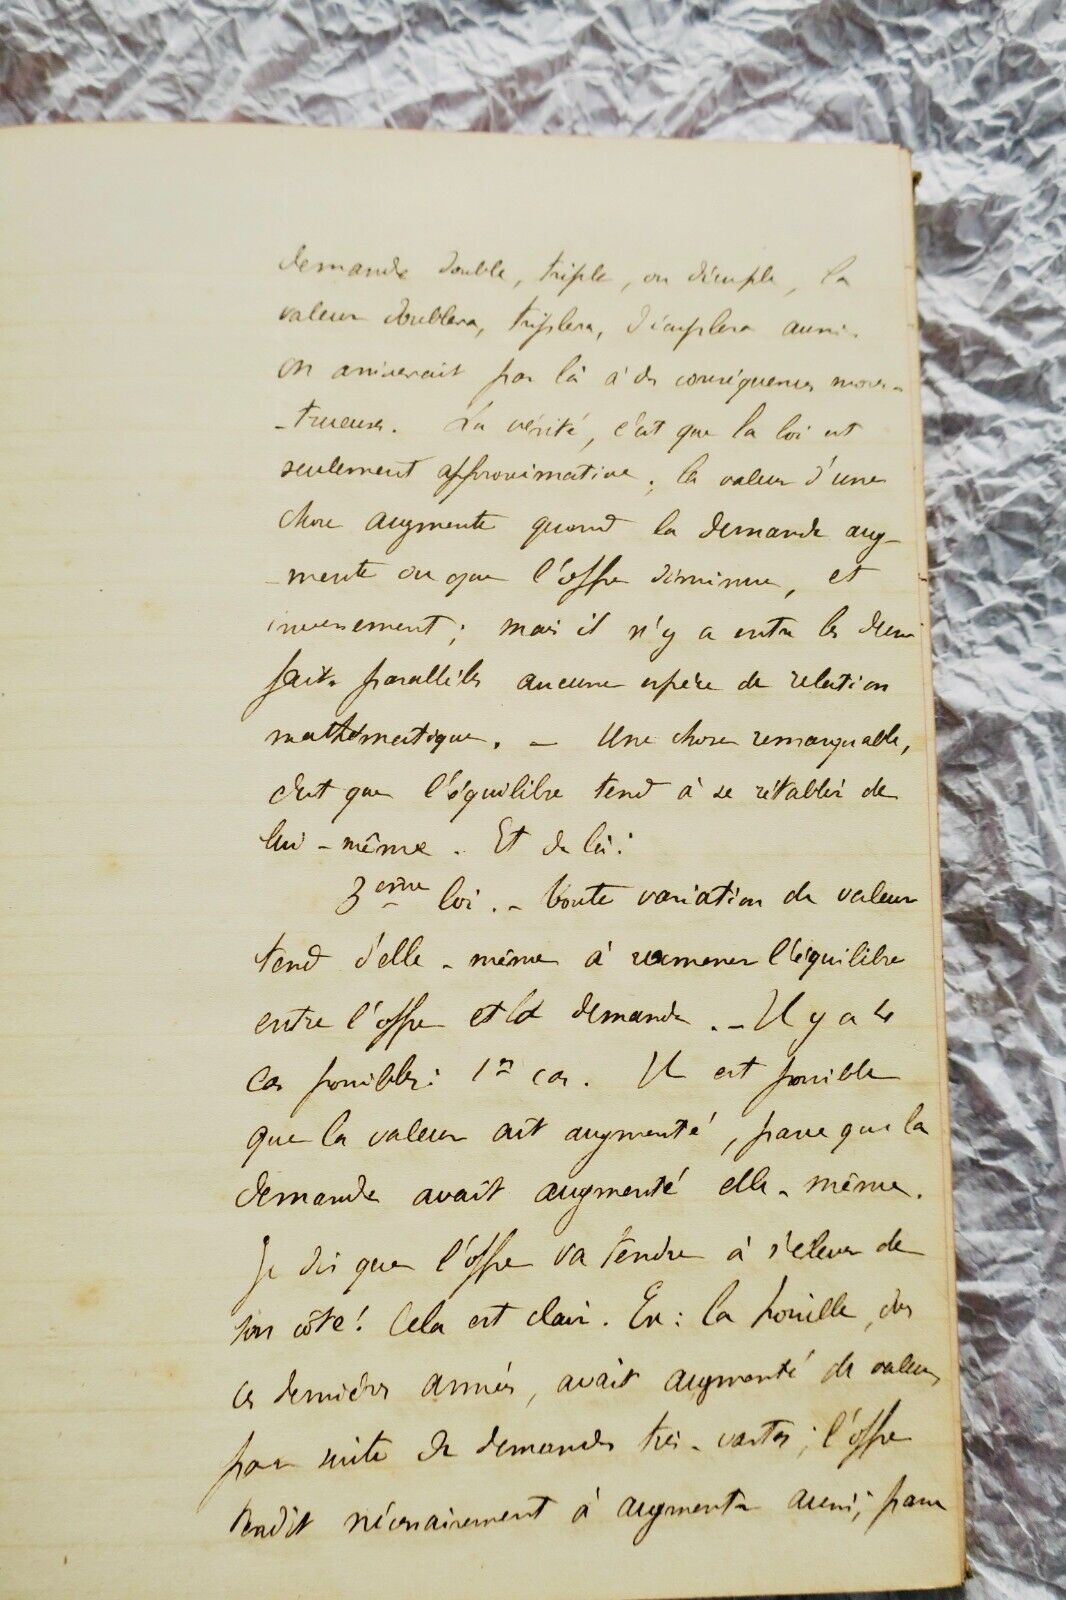 demande double, triple, ou décuple, la
valeur doublera, triplera, décuplera aussi.
On arriverait par là à des conséquences mons-
-trueuses. La vérité, c'est que la loi est
seulement approximative ; la valeur d'une
chose augmente quand la demande aug-
-mente ou que l'offre diminue, et
inversement ; mais il n'y a entre les deux
faits parallèles aucune espèce de relation
mathématique. – Une chose remarquable,
c'est que l'équilibre tend à se rétablir de
lui-même. Et de là :
3ème loi. – Toute variation de valeur
tend d'elle-même à ramener l'équilibre
entre l'offre et la demande. – Il y a 4
cas possibles : 1er cas. Il est possible
que la valeur ait augmenté, parce que la
demande avait augmenté elle-même.
Je dis que l'offre va tendre à s'élever de
son côté ! Cela est clair. Ex : la houille, dans
ces dernières années, avait augmenté de valeur,
par suite de demandes très-vastes ; l'offre
tendit nécessairement à augmenter aussi ; parce